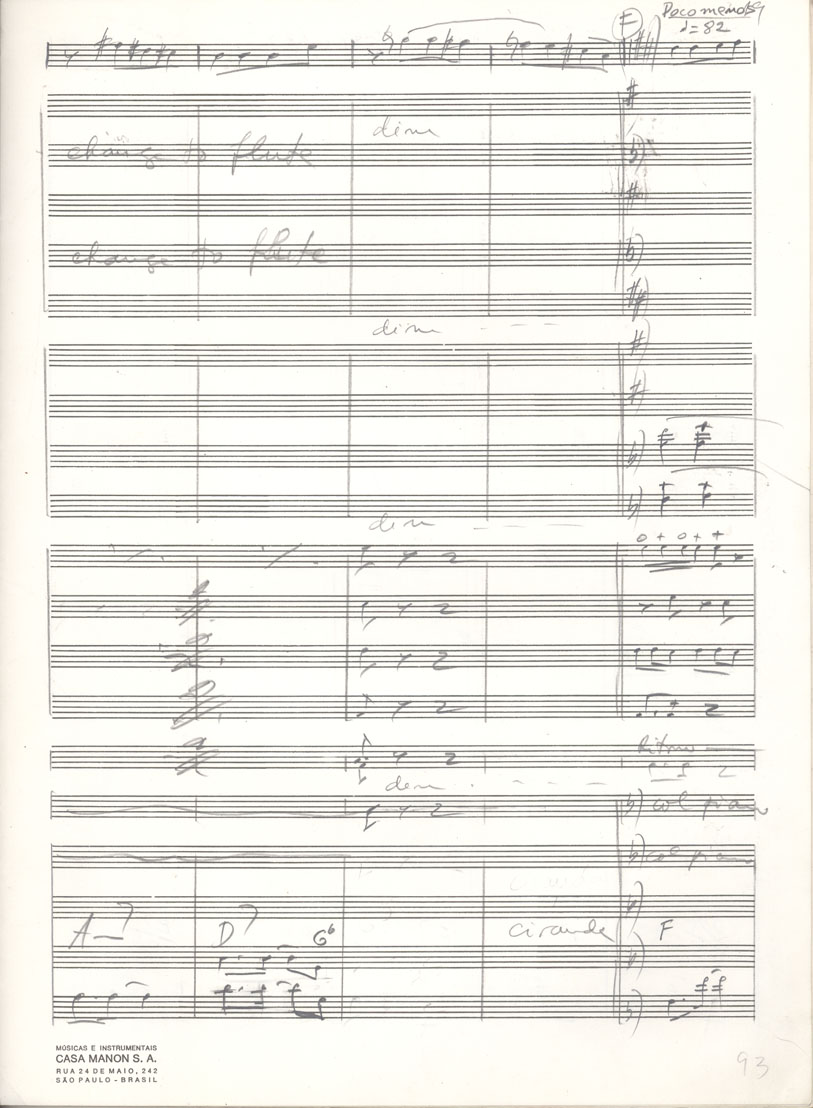 E Poco menos
♩= 82
dim
change to flute
change to flute
dim
dim
o + o + +
Ritmo
dim
col piano
col piano
A–7 D7 G6 ciranda F
MÚSICAS E INSTRUMENTAIS
CASA MANON S. A.
RUA 24 DE MAIO, 242
SÃO PAULO - BRASIL
93